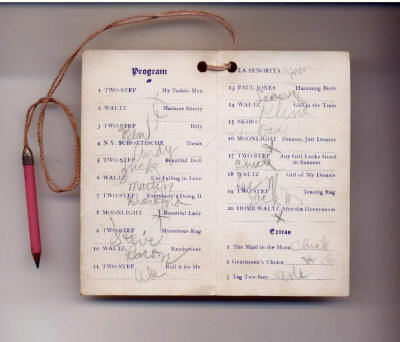 Program
1 TWO-STEP My Tudolo Man
2 WALTZ Madame Sherry
3 TWO-STEP Billy
Ben
4 N.Y. SCHOTTISCHE Thesis
Andy
5 TWO-STEP Beautiful Doll
Zack
6 WALTZ I'm Falling in Love
Martin
7 TWO-STEP Everybody's Doing It
8 MOONLIGHT Beautiful Lady
X
9 TWO-STEP Mysterious Rag
Steve
10 WALTZ Rendezvous
Aaron
11 TWO-STEP Roll it for Me
Abe
LA SENORITA Jim
13 PAUL JONES Humming Birds
14 WALTZ Girl in the Train
15 SKIBO
16 MOONLIGHT Dreams, Just Dreams
X
17 TWO-STEP Any Girl Looks Good in Summer
Chuck
18 WALTZ Girl of My Dreams
19 TWO-STEP Teasing Rag
20 HOME WALTZ After the Honeymoon
X
Extras
1 The Maid in the Moon Chuck
2 Gentlemen's Choice
3 Tag Two-Step